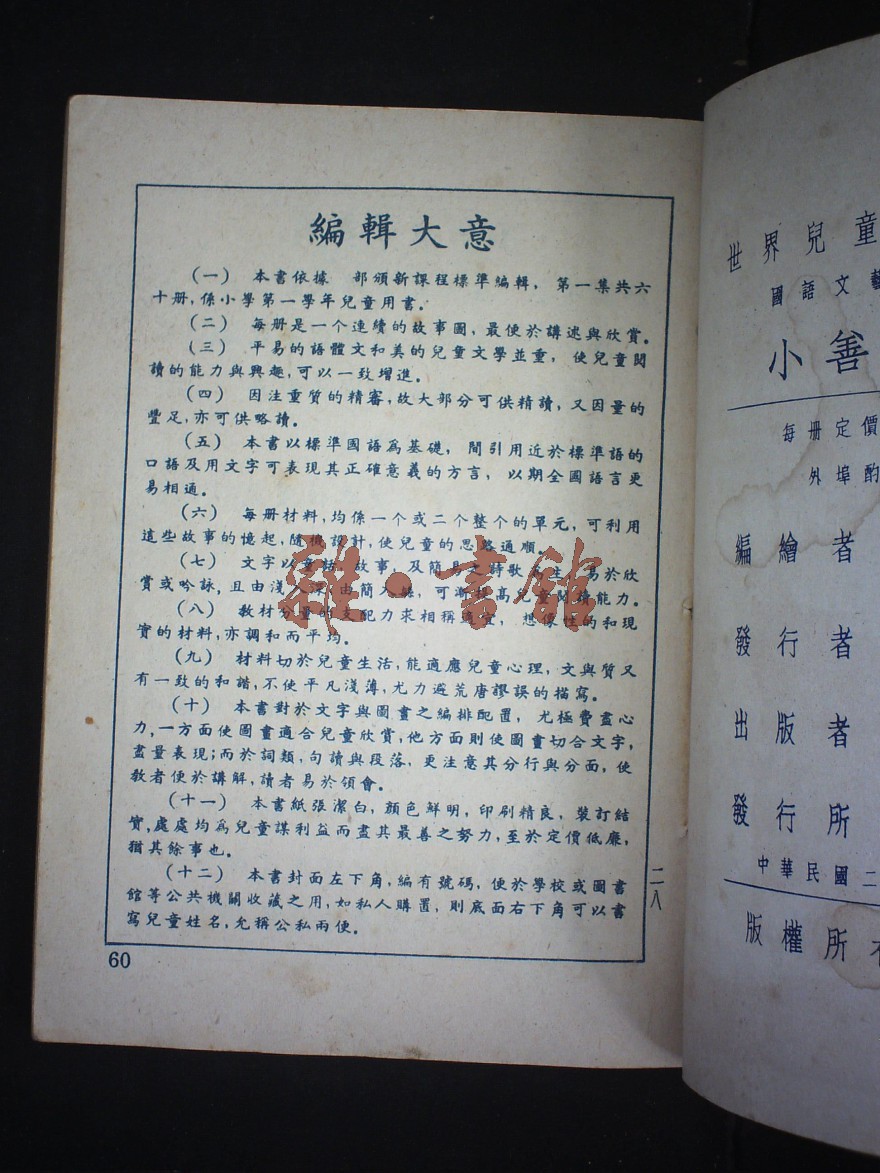 編輯大意
（一） 本書依據 部頒新課程標準編輯，第一集共六
十册，係小學第一學年兒童用書。
（二） 每册是一个連續的故事圖，最便於講述與欣賞。
（三） 平易的語體文和美的兒童文學並重，使兒童閱
讀的能力與興趣，可以一致增進。
（四） 因注重質的精審，故大部分可供精讀，又因量的
豐足，亦可供略讀。
（五） 本書以標準國語爲基礎，間引用近於標準語的
口語及用文字可表現其正確意義的方言，以期全國語言更
易相通。
（六） 每册材料，均係一个或二个整个的單元，可利用
這些故事的憶起，隨機設計，使兒童的思路通順。
（七） 文字以童話，故事，及簡易之詩歌爲生，易於欣
賞或吟詠，且由淺入深，由簡入繁，可漸提高兒童閱讀能力。
（八） 教材分量的支配力求相稱適宜，想像性的和現
實的材料，亦調和而平均。
（九） 材料切於兒童生活，能適應兒童心理，文與質又
有一致的和諧，不使平凡淺薄，尤力避荒唐謬誤的描寫。
（十） 本書對於文字與圖畫之編排配置，尤極費盡心
力，一方面使圖畫適合兒童欣賞，他方面則使圖畫切合文字，
盡量表現；而於詞類，句讀與段落，更注意其分行與分面，使
教者便於講解，讀者易於領會。
（十一） 本書紙張潔白，顏色鮮明，印刷精良，裝訂結
實，處處均爲兒童謀利益而盡其最善之努力，至於定價低廉，
猶其餘事也。
（十二） 本書封面左下角，編有號碼，便於學校或圖書
館等公共機關收藏之用，如私人購置，則底面右下角可以書
寫兒童姓名，允稱公私兩便。
二八
60
雜·書館
世界兒童
國語文藝
小善
每册定價
外埠酌
編繪者
發行者
出版者
發行所
中華民國二
版權所